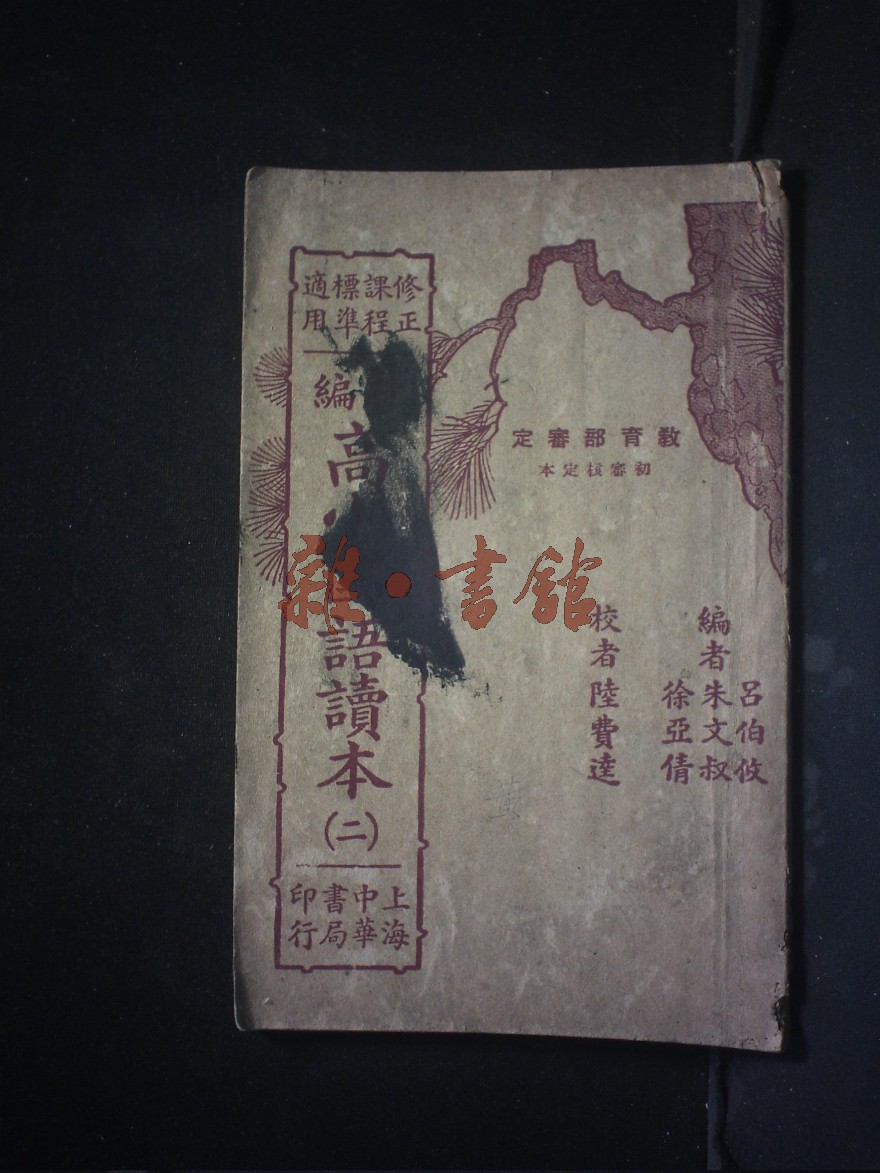 教育部審定
初審核定本
呂伯攸
編者朱文叔
徐亞倩
校者陸費逵
修正
課程
標準
適用
編
高 語讀本
(二)
上海
中華
書局
印行
雜·書館